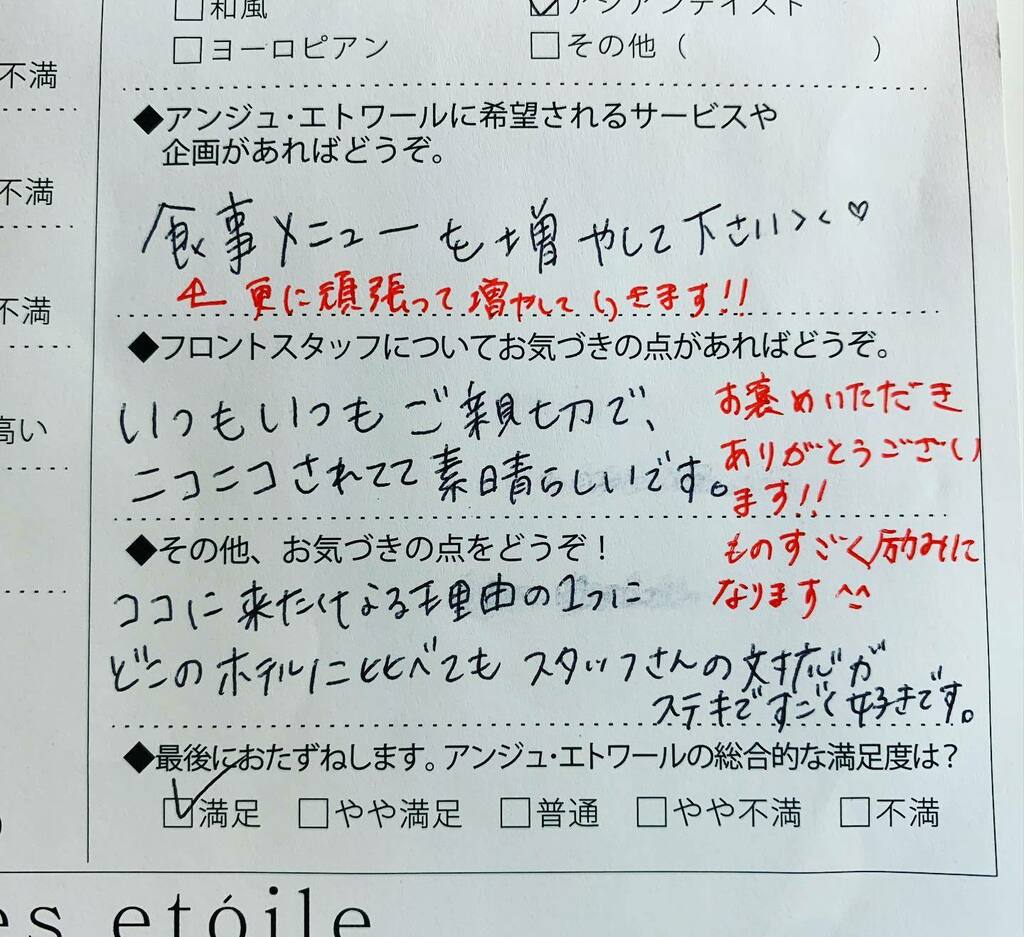 □和風 ☑アジアンテイスト
□ヨーロピアン □その他（ ）
不満
◆アンジュ・エトワールに希望されるサービスや
企画があればどうぞ。
不満
食事メニューを増やして下さい＞＜♡
←更に頑張って増やしていきます!!
不満
◆フロントスタッフについてお気づきの点があればどうぞ。
いつもいつもご親切で、
ニコニコされてて素晴らしいです。
お褒めいただき
ありがとうござい
ます!!
ものすごく励みに
なります^^
高い
◆その他、お気づきの点をどうぞ！
ココに来たくなる理由の1つに
どこのホテルに比べても スタッフさんの対応が
ステキですごく好きです。
◆最後におたずねします。アンジュ・エトワールの総合的な満足度は？
☑満足 □やや満足 □普通 □やや不満 □不満
es etóile